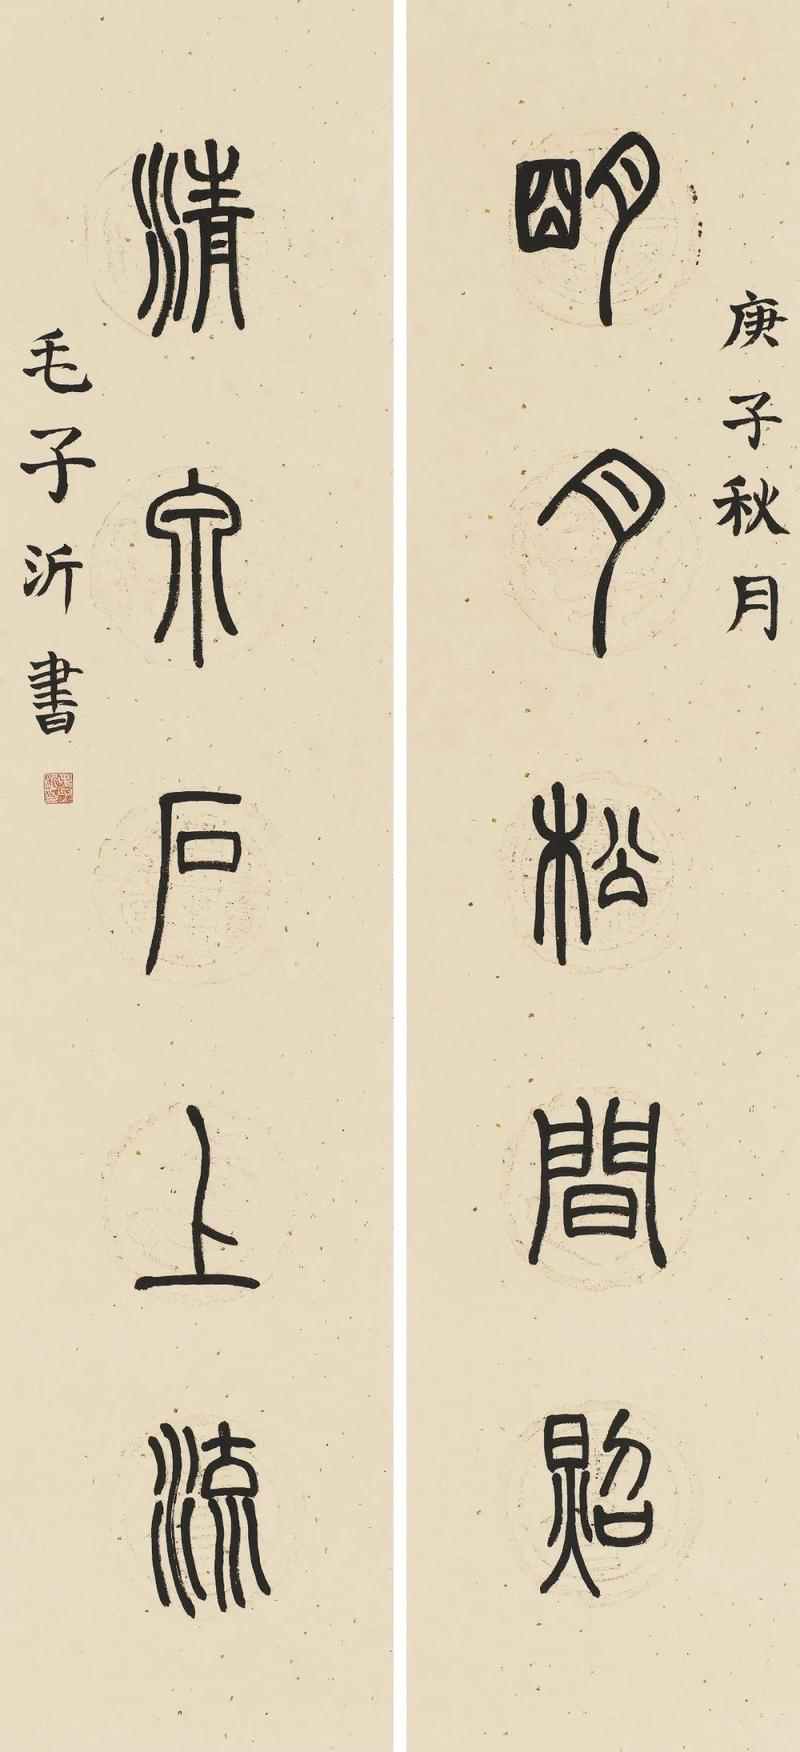 庚子秋月
明月松間照
清泉石上流
毛子沂書